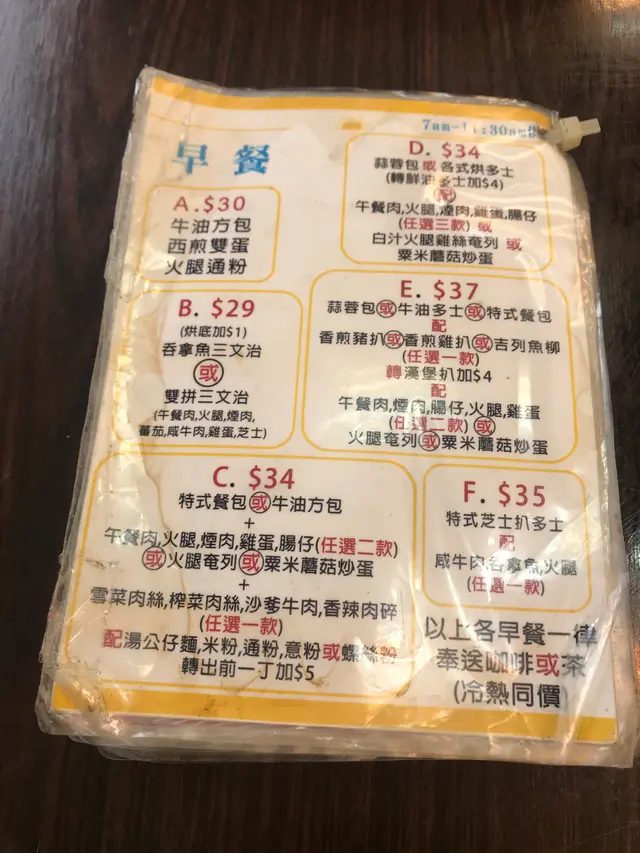 7am-11:30am
早餐
A.$30
牛油方包
西煎雙蛋
火腿通粉
B. $29
(烘底加$1)
吞拿魚三文治
或
雙拼三文治
(午餐肉,火腿,煙肉,
蕃茄,咸牛肉,雞蛋,芝士)
C. $34
特式餐包或牛油方包
+
午餐肉,火腿,煙肉,雞蛋,腸仔(任選二款)
或火腿奄列或粟米蘑菇炒蛋
+
雪菜肉絲,榨菜肉絲,沙爹牛肉,香辣肉碎
(任選一款)
配湯公仔麵,米粉,通粉,意粉或螺絲粉
轉出前一丁加$5
D. $34
蒜蓉包或各式烘多士
(轉鮮油多士加$4)
配
午餐肉,火腿,煙肉,雞蛋,腸仔
(任選三款) 或
白汁火腿雞絲奄列 或
粟米蘑菇炒蛋
E. $37
蒜蓉包或牛油多士或特式餐包
配
香煎豬扒或香煎雞扒或吉列魚柳
(任選一款)
轉漢堡扒加$4
配
午餐肉,煙肉,腸仔,火腿,雞蛋
(任選二款) 或
火腿奄列或粟米蘑菇炒蛋
F. $35
特式芝士扒多士
配
咸牛肉,吞拿魚,火腿
(任選一款)
以上各早餐一律
奉送咖啡或茶
(冷熱同價)